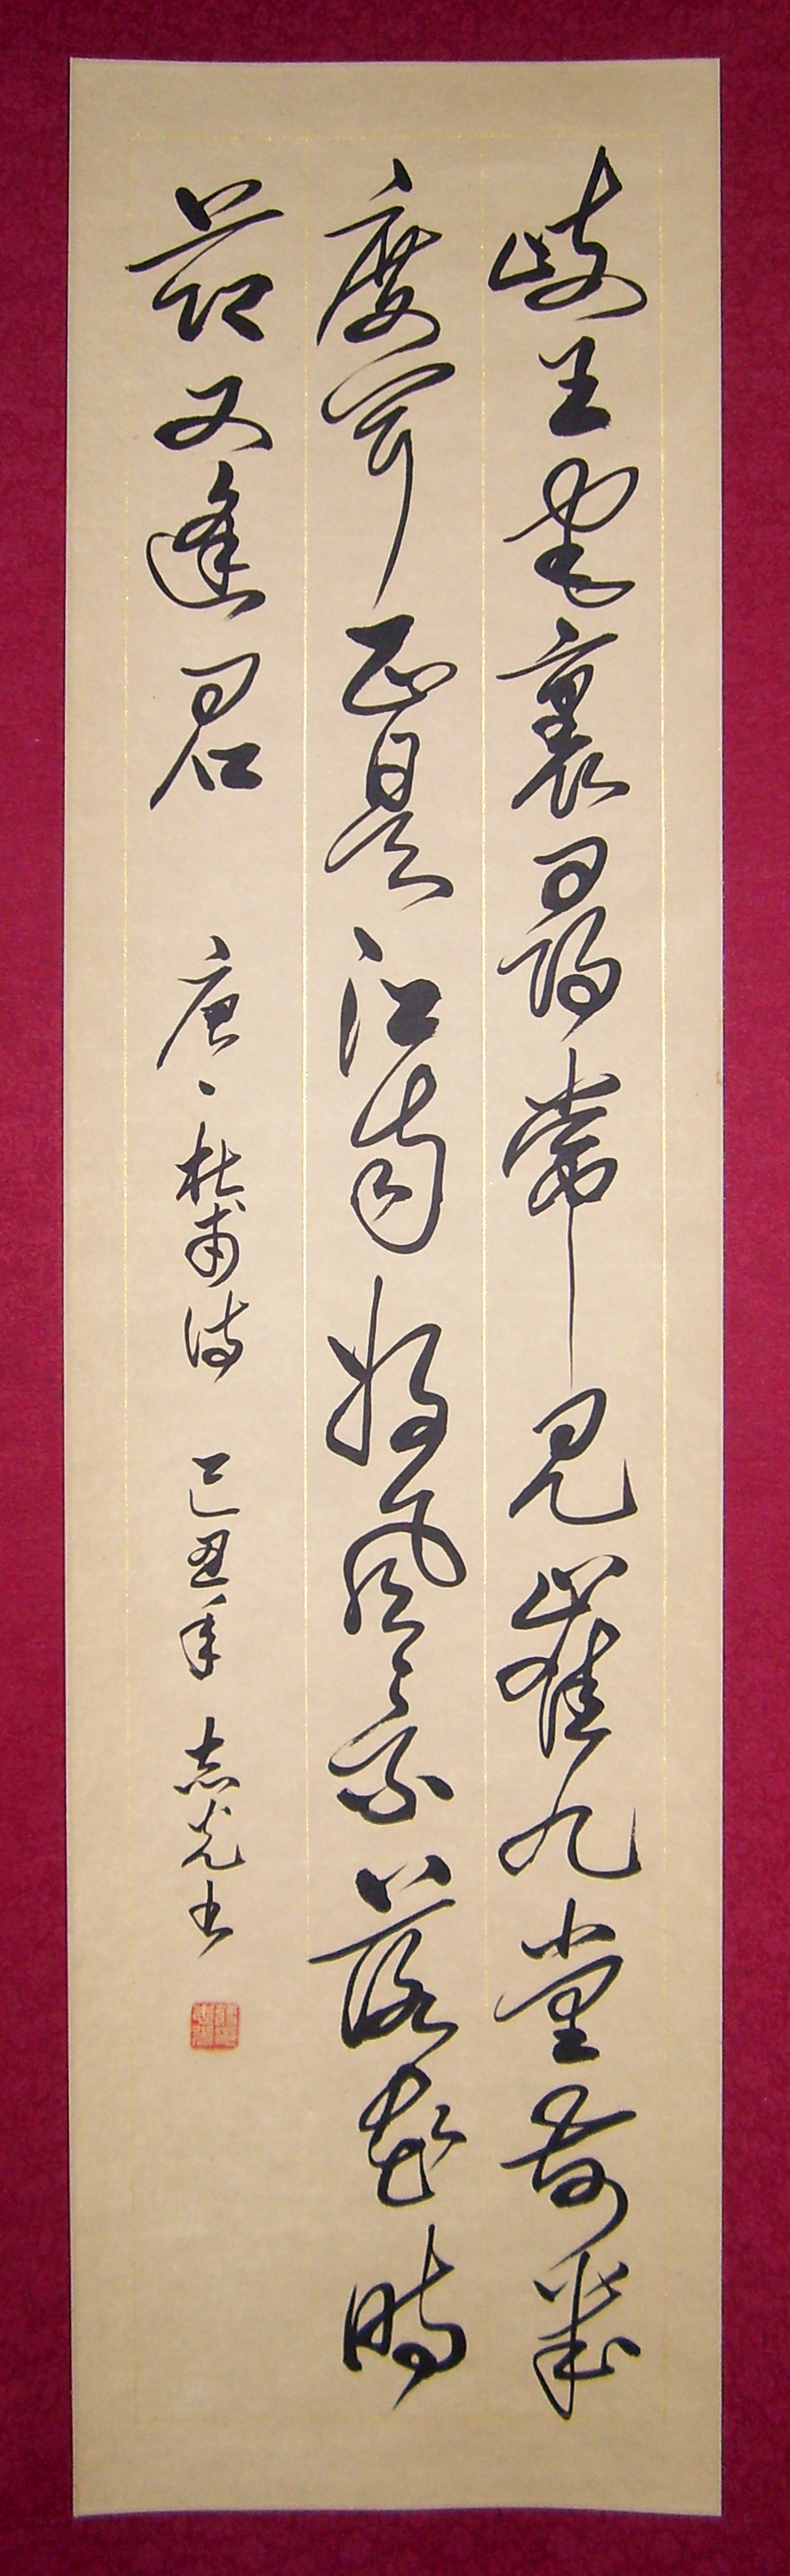 岐王宅裏尋常見崔九堂前幾
度聞正是江南好風景落花時
節又逢君 唐、杜甫詩 己丑年 志光書